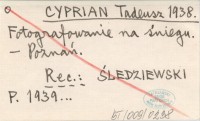 CYPRIAN Tadeusz 1938.
Fotografowanie na śniegu.
— Poznań.
Rec.: ŚLEDZIEWSKI
P. 1939...